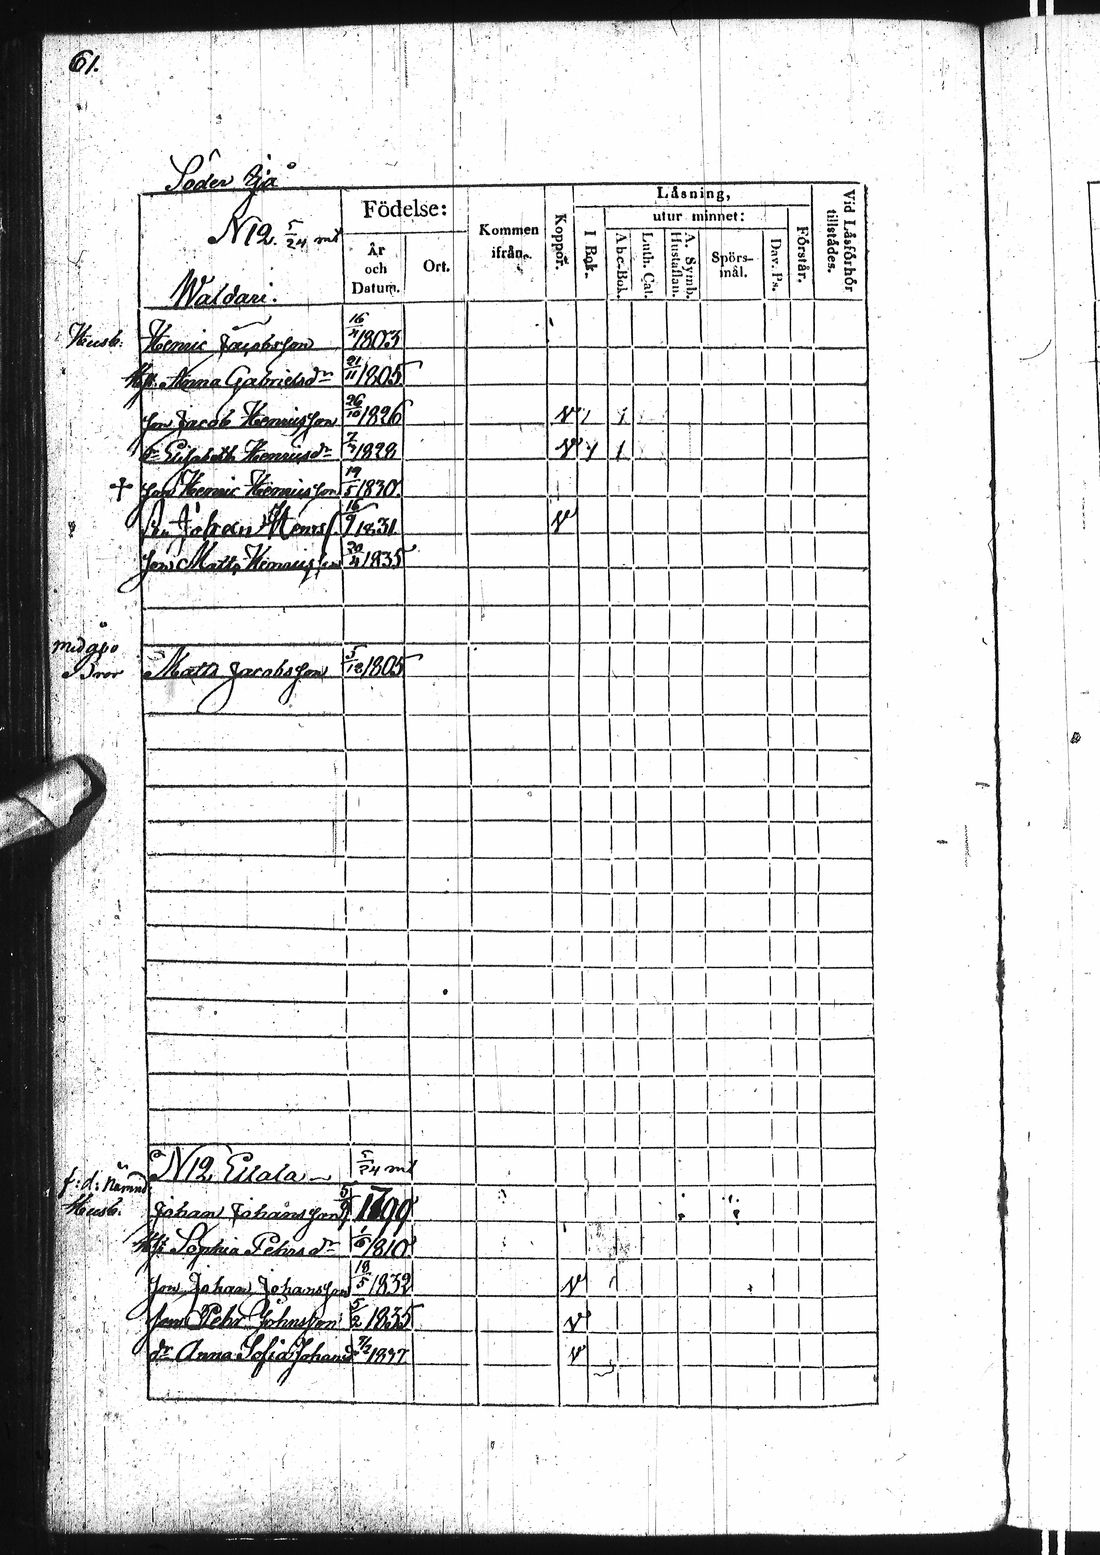 61.
Söder Ejå
N 12. 5/24 mtl
Waldari.
Födelse:
År och Datum.
Ort.
Kommen ifrån.
Koppor.
Läsning,
I Bok.
utur minnet:
Abc-Bok.
Luth. Cat.
A. Symb. Hustaflan.
Spörs-mål.
Dav. Ps.
Förstår.
Vid Läsförhör tillstädes.
Husb. Henric Jacobsson 1803
Anna Gabrielsdr 21/11 1805
son Jacob Henricsson 26/10 1826 v 1 1
dr Elisabeth Henricsdr 1828 v 1 1
+ son Henric Henricsson 19/5 1830
Son Johan Henrs. 16/9 1831 v
son Matts Henricsson 20/4 1835
Bror Matts Jacobsson 5/12 1805
N 12 Eilala 5/24 mtl
f: d: Nämnd:
Husb. Johan Johansson 5/9 1799
Sophia Pehrsdr 1/6 1810
son Johan Johansson 18/5 1832 v
son Pehr Johnsson 5/2 1835 v
dr Anna Sofia Johansd 7/2 1837 v